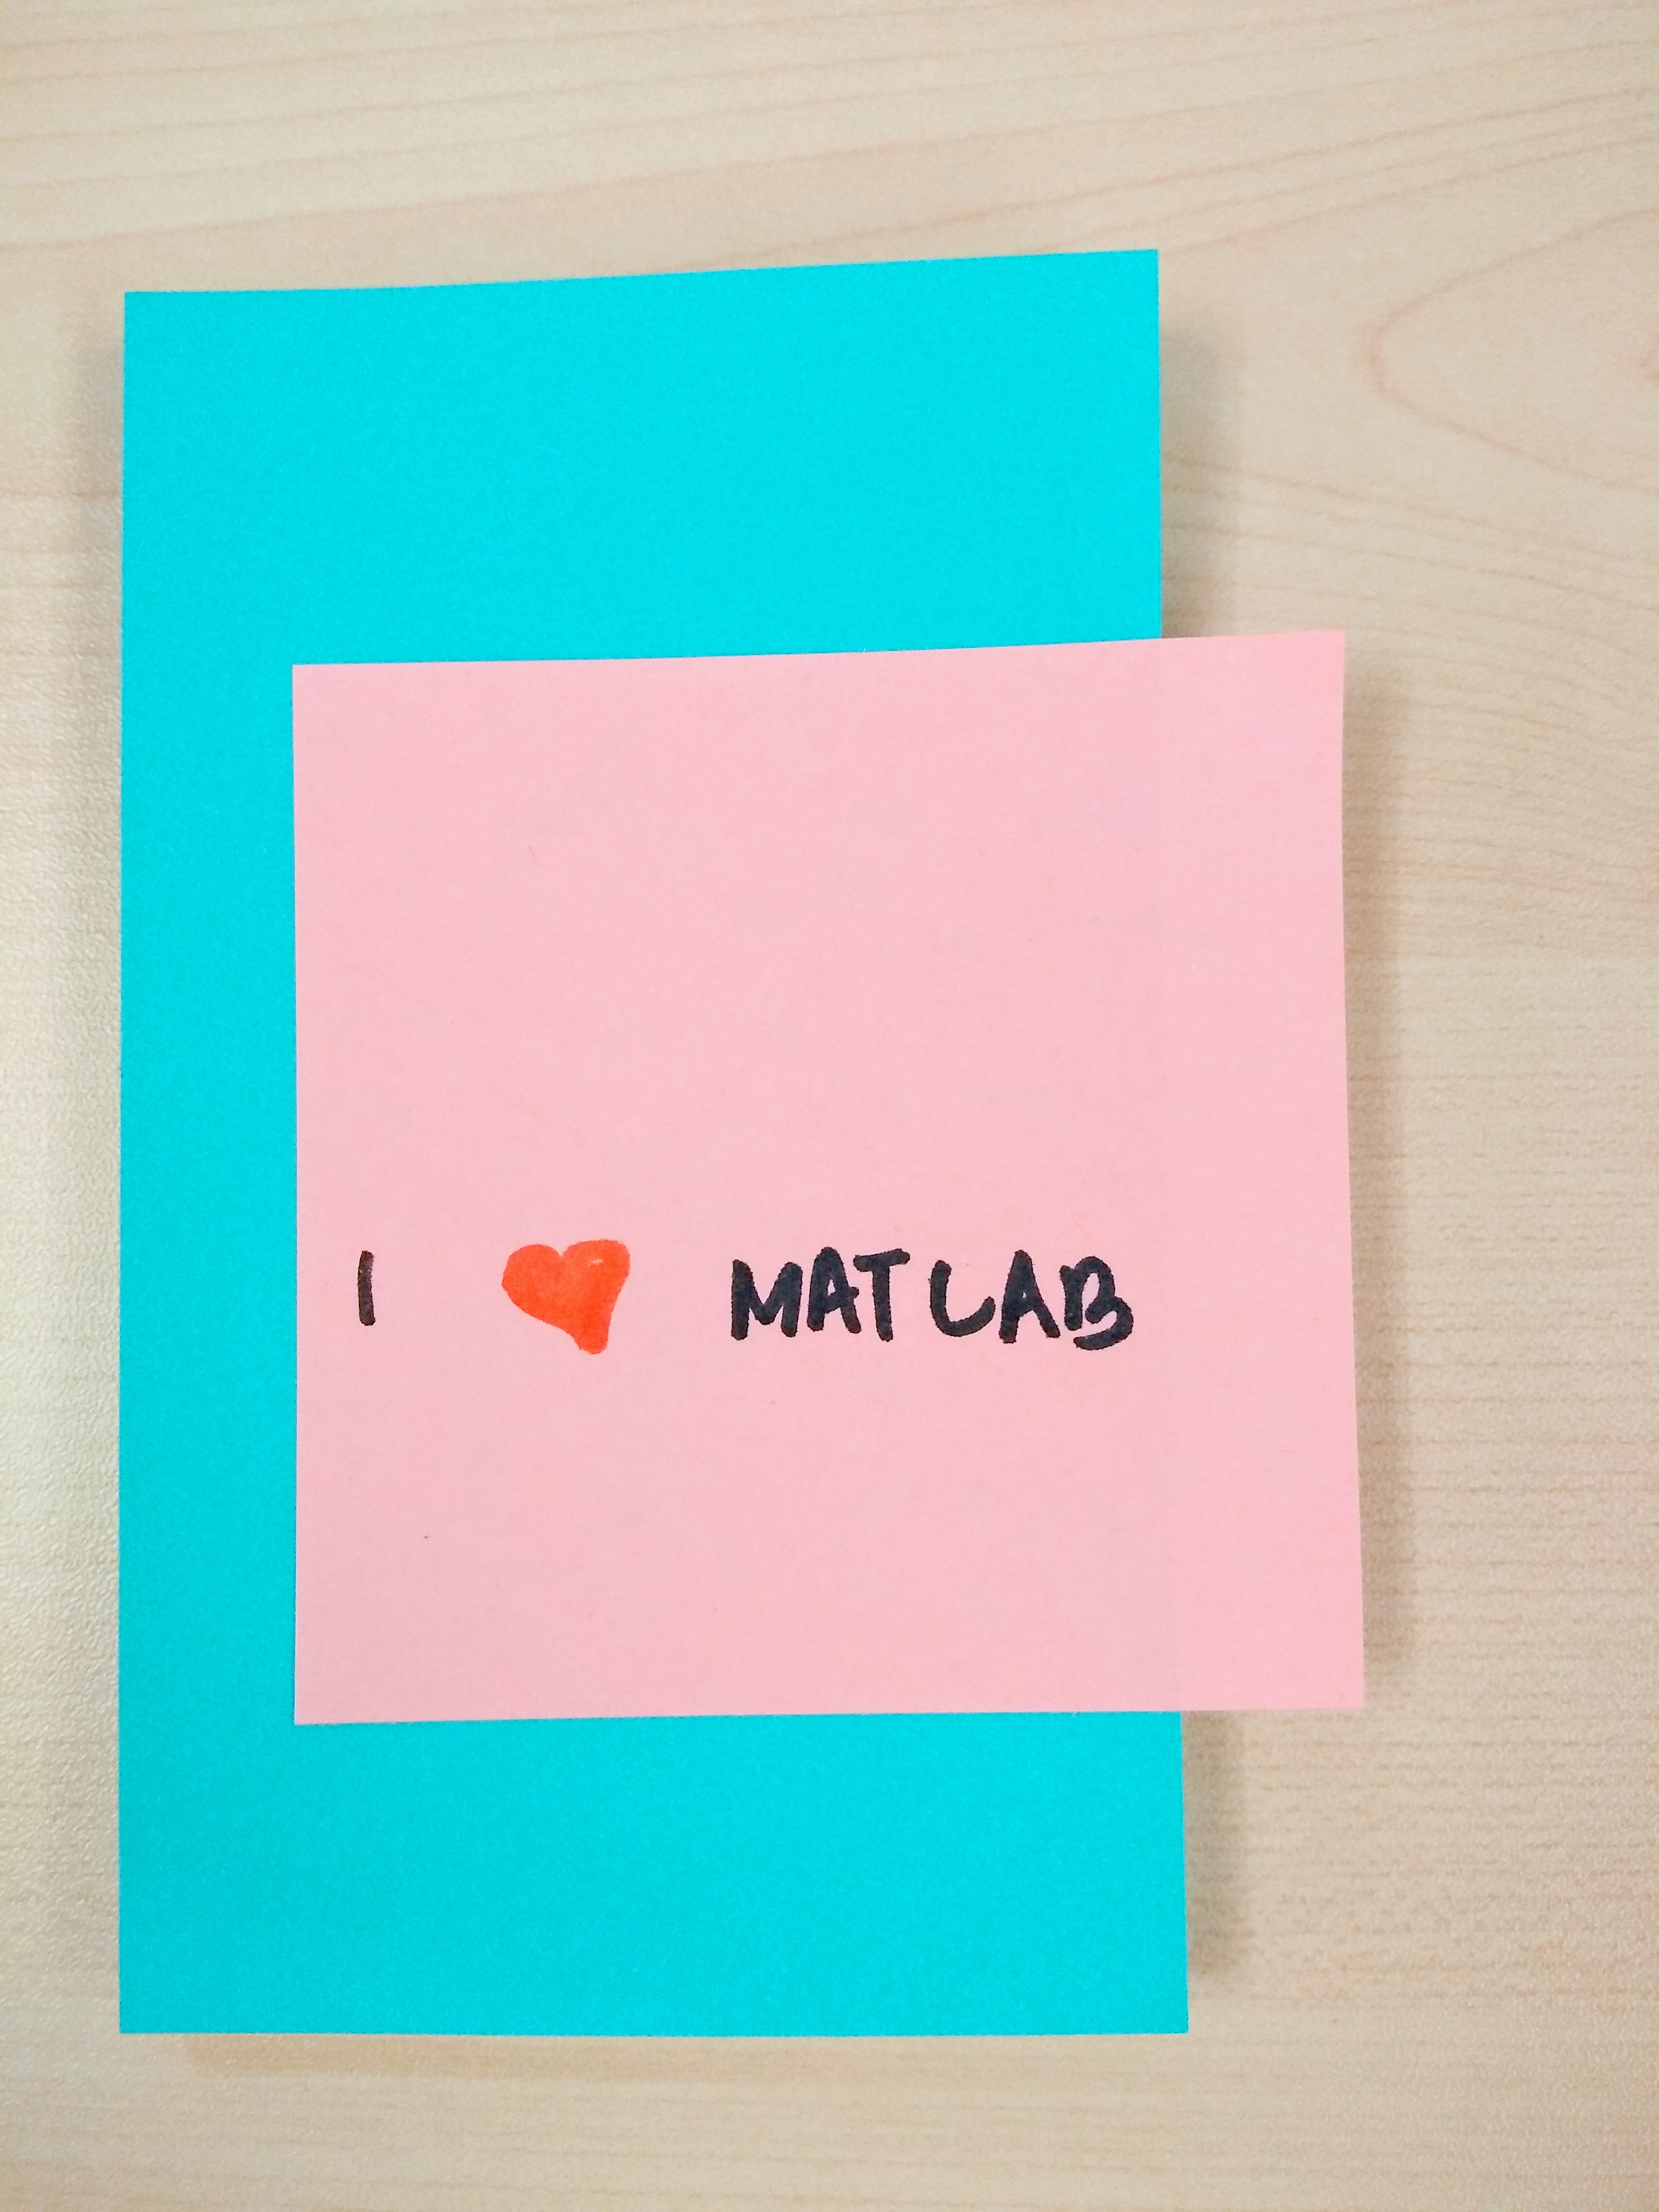 I ❤ MATLAB